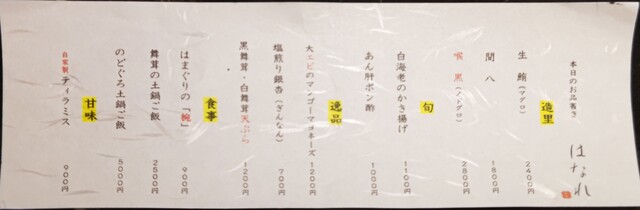 本日のお品書き
はなれ
造里
生 鮪(マグロ) 2400円
間 八 1800円
喉 黒(ノドグロ) 2800円
旬
白海老のかき揚げ 1100円
あん肝ポン酢 1000円
逸品
大エビのマンゴーマヨネーズ 1200円
塩煎り銀杏(ぎんなん) 700円
黒舞茸・白舞茸天ぷら 1200円
食事
はまぐりの「椀」 900円
舞茸の土鍋ご飯 2500円
のどぐろ土鍋ご飯 5000円
甘味
自家製 ティラミス 900円